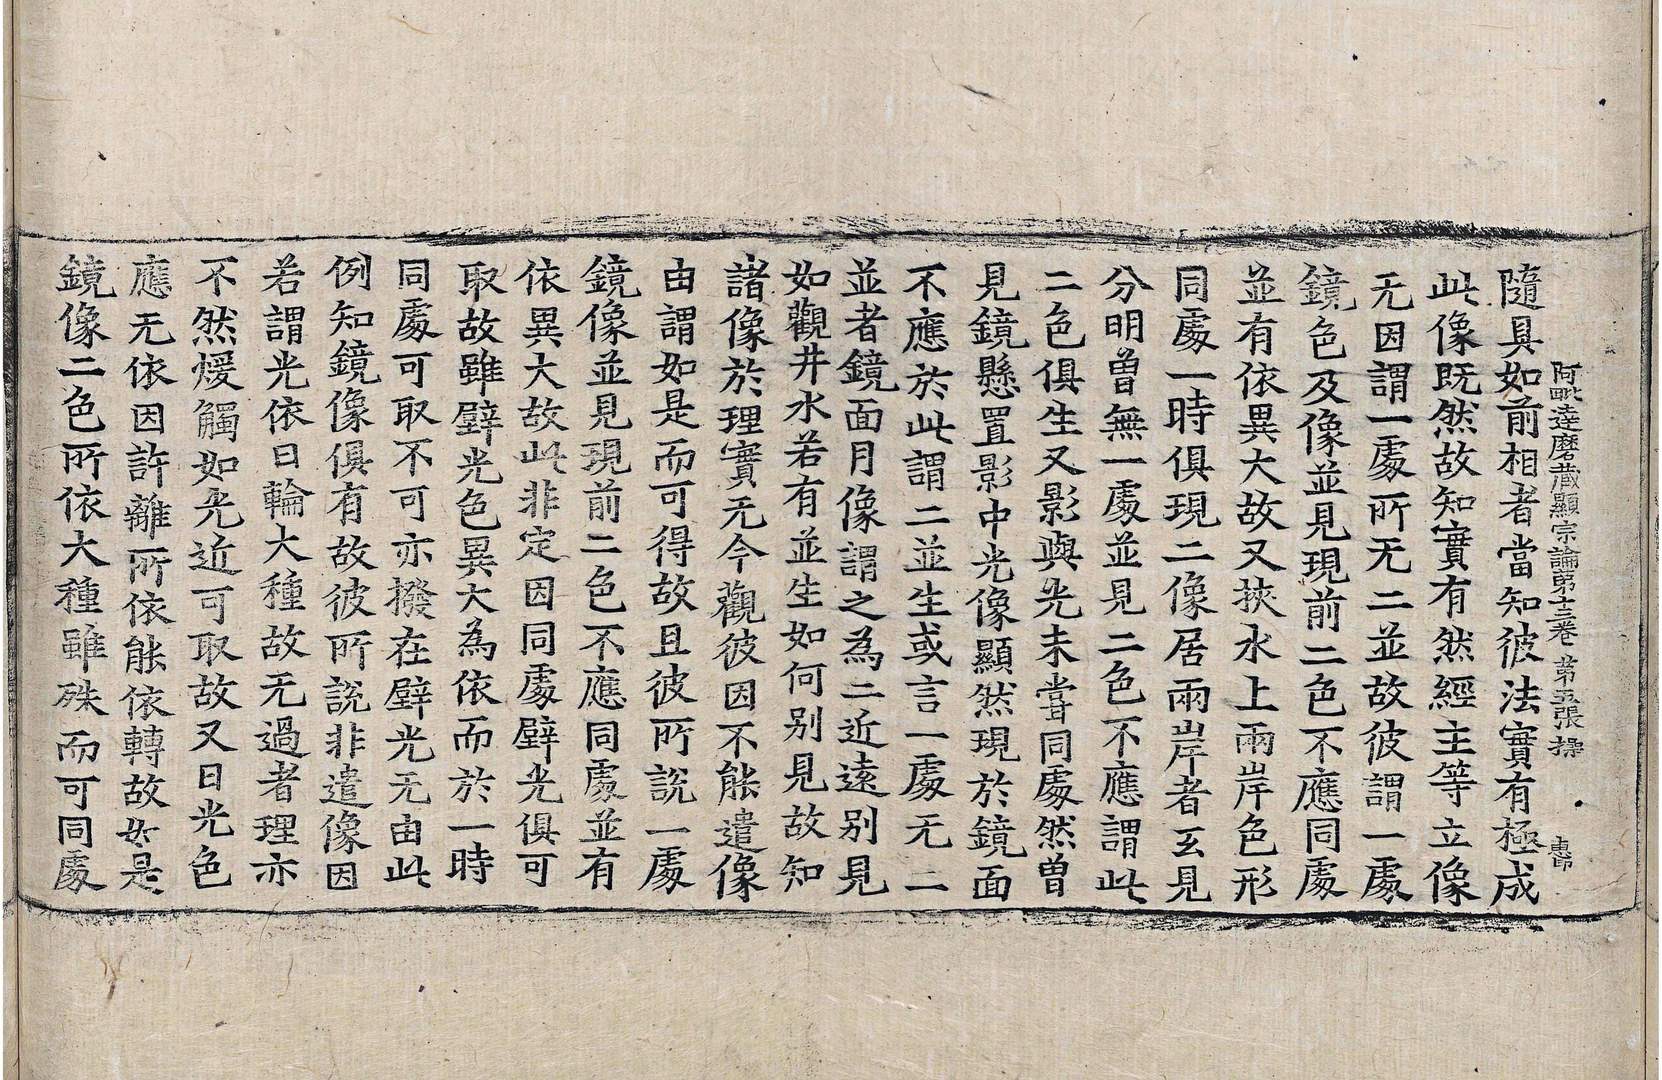 阿毗達磨藏顯宗論第十三卷 第五張 操
惠印
隨具如前相者當知彼法實有極成
此像既然故知實有然經主等立像
无因謂一處所无二並故彼謂一處
鏡色及像並見現前二色不應同處
並有依異大故又挾水上兩岸色形
同處一時俱現二像居兩岸者玄見
分明曾無一處並見二色不應謂此
二色俱生又影與光未嘗同處然曾
見鏡懸置影中光像顯然現於鏡面
不應於此謂二並生或言一處无二
並者鏡面月像謂之為二近遠別見
如觀井水若有並生如何別見故知
諸像於理實无今觀彼因不能遣像
由謂如是而可得故且彼所說一處
鏡像並見現前二色不應同處並有
依異大故此非定因同處壁光俱可
取故雖壁光色異大為依而於一時
同處可取不可亦撥在壁光无由此
例知鏡像俱有故彼所說非遣像因
若謂光依日輪大種故无過者理亦
不然煖觸如光近可取故又日光色
應无依因許離所依能依轉故如是
鏡像二色所依大種雖殊而可同處